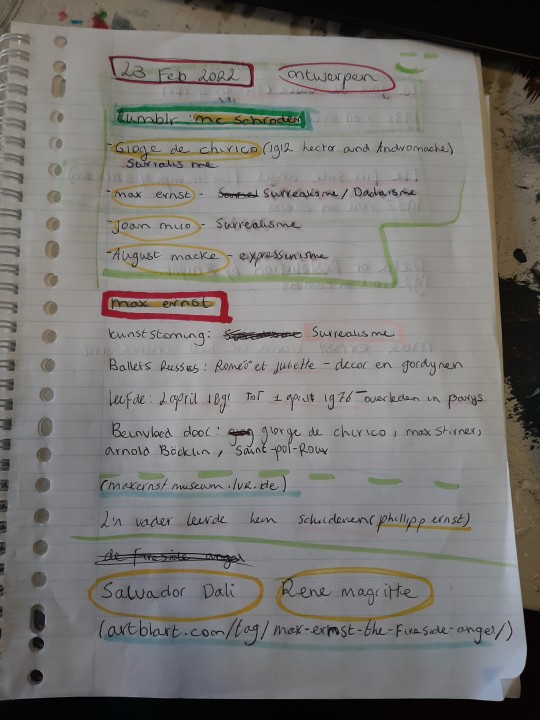 23 Feb 2022
ontwerpen
tumblr: mc schroder
-Gioge de chirico (1912 hector and Andromache)
Surialisme
-max ernst - Surrealisme/Dadaisme
-Joan muo - Surrealisme
-August macke - expressinisme
max ernst
kunststoming: Surrealisme
Ballets Russes: Romeo et juliette - decor en gordynen
Leefde: 2 april 1891 tot 1 april 1976 - overleden in parys
Beinvloed door: giorge de chirico, max Stirner,
arnold Böcklin, Saint-pol-Roux
(maxernstmuseum.lvr.de)
Zn vader leerde hem schilderen (philipp ernst)
de fireside angel
Salvador Dali
Rene magritte
(artblart.com/tag/max-ernst-the-fireside-angel/)